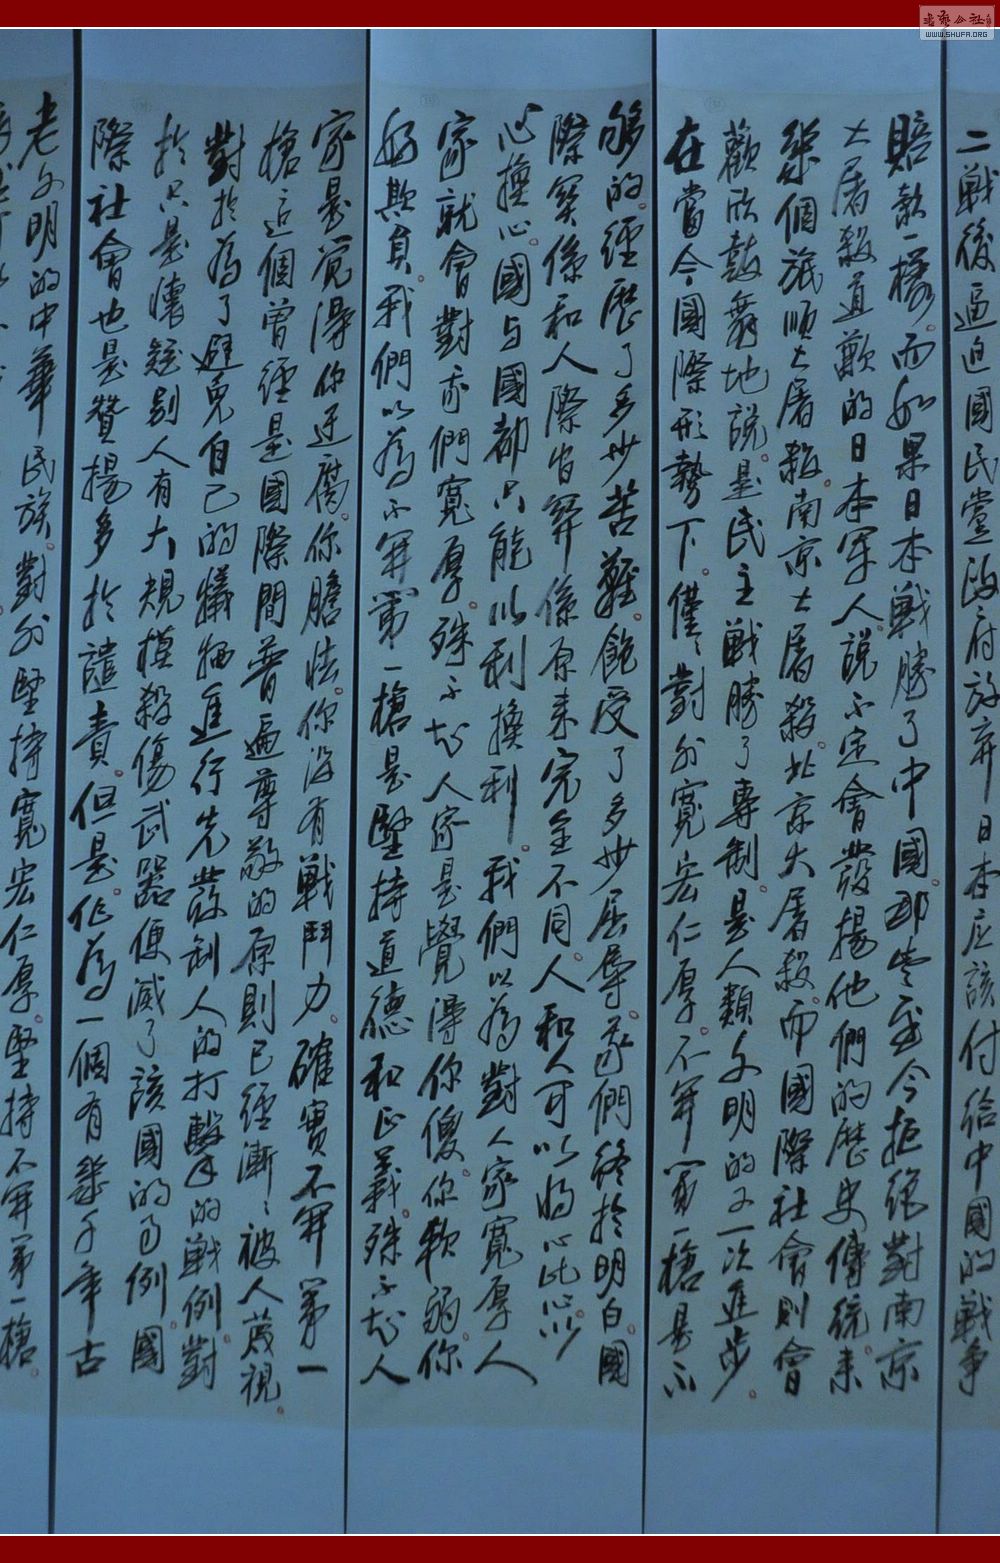 二戰後逼迫國民黨政府放弃日本應該付給中國的戰爭
賠款一樣而如果日本戰勝了中國那些至今拒絕對南京
大屠殺道歉的日本軍人說不定會發揚他們的歷史傳統來
幾個旅順大屠殺南京大屠殺北京大屠殺而國際社會則會
歡欣鼓舞地說是民主戰勝了專制是人類文明的又一次進步
在當今國際形勢下僅僅對外寬宏仁厚不開第一槍是不
够的經歷了多少苦難飽受了多少屈辱我們終於明白國
際關係和人際關係原來完全不同人和人可以將心比心以
心換心國与國都只能以利換利我們以為對人家寬厚人
家就會對我們寬厚殊不知人家是覺得你傻你軟弱你
好欺負我們以為不開第一槍是堅持道德和正義殊不知人
家是覺得你迂腐你膽怯你没有戰鬥力確實不開第一
槍這個曾經是國際間普遍尊敬的原則已經漸漸被人蔑視
對於為了避免自己的犧牲進行先發制人的打擊的戰例對
於只是懷疑別人有大規模殺傷武器便滅了該國的事例國
際社會也是贊揚多於譴責但是作為一個有幾千年古
老文明的中華民族對外堅持寬宏仁厚堅持不開第一槍
書藝公社
WWW.SHUFA.ORG